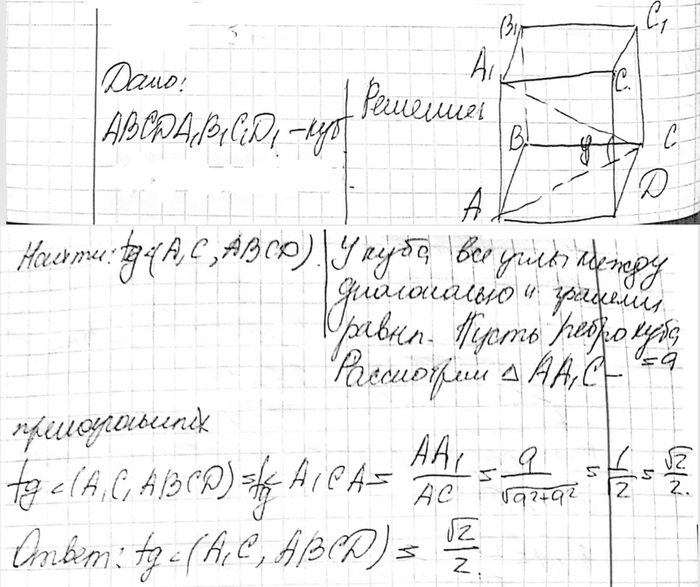 Дано:
ABCDA₁B₁C₁D₁ – куб
Решение:
B₁ C₁
A₁ C
B φ C
A D
Найти: tg∠(A₁C, ABCD).
У куба все углы между
диагональю и гранями
равны. Пусть ребро куба
= a
Рассмотрим △ AA₁C –
прямоугольник
tg∠(A₁C, ABCD) = tg∠ A₁CA = AA₁/AC = a/√(a²+a²) = 1/√2 = √2/2.
Ответ: tg∠(A₁C, ABCD) = √2/2.